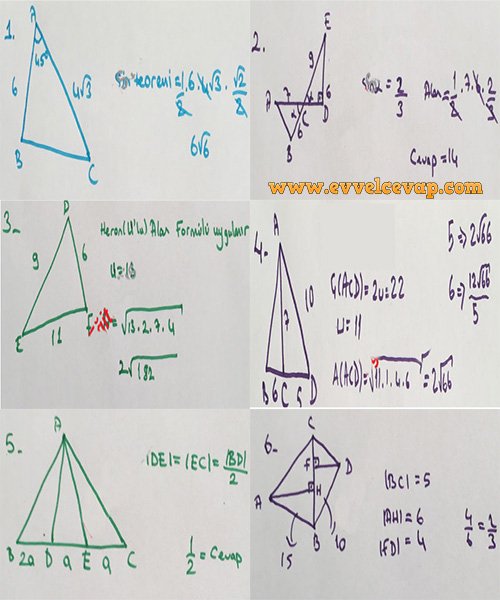 1.
A
45°
6
4√3
B
C
Sin teoremi = 1/2 . 6 . 4√3 . √2/2
6√6
2.
E
9
6
A
7
α
C
D
6
B
= 2/3
Alan = 1/2 . 7 . 6 . 2/3
Cevap = 14
www.evvelcevap.com
3-
D
9
6
E
11
F
Heron (U'lu) Alan Formülü uygulanır
u = 13
= √13.2.7.4
2√182
4-
A
7
10
B
6
C
5
D
Ç(ACD) = 2u = 22
u = 11
A(ACD) = √11.1.4.6 = 2√66
5 ⇒ 2√66
6 ⇒ 12√66/5
5-
A
B
2a
D
a
E
a
C
|DE| = |EC| = |BD|/2
1/2 = Cevap
6-
C
F
D
A
H
B
15
10
|BC| = 5
|AH| = 6
|FD| = 4
4/6 = 2/3